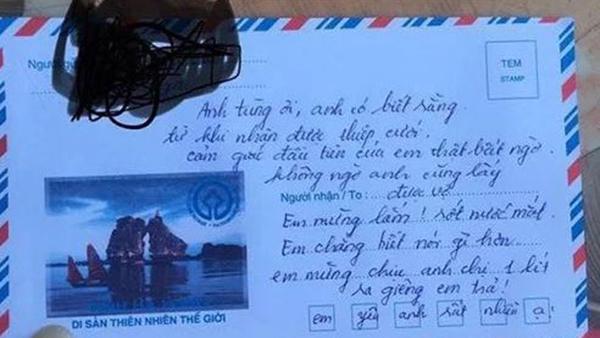 Người gửi
TEM
STAMP
Anh tùng ơi, anh có biết rằng
từ khi nhận được thiếp cưới.
cảm giác đầu tiên của em thật bất ngờ.
không ngờ anh cũng lấy
Người nhận / To : được vợ
Em mừng lắm ! rớt nước mắt.
Em chẳng biết nói gì hơn
em mừng chiu anh chị 1 lít
ra giêng em trả !
em yêu anh rất nhiều ạ!
DI SẢN THIÊN NHIÊN THẾ GIỚI